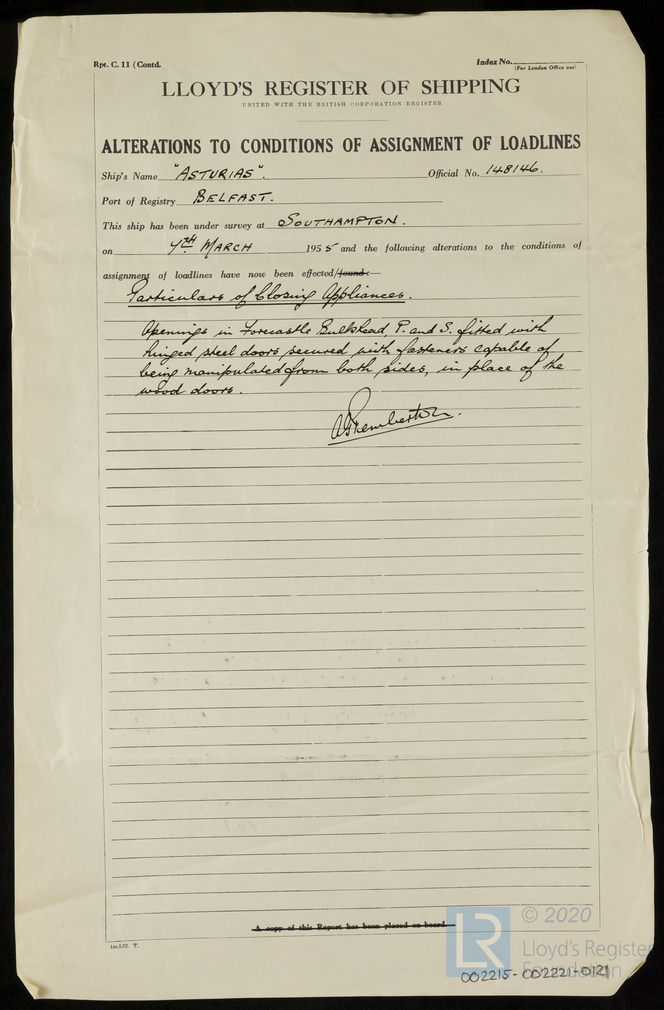 Rpt. C. 11 (Contd.
Index No.
(For London Office use)
LLOYD'S REGISTER OF SHIPPING
UNITED WITH THE BRITISH CORPORATION REGISTER
ALTERATIONS TO CONDITIONS OF ASSIGNMENT OF LOADLINES
Ship's Name "ASTURIAS". Official No. 148146.
Port of Registry BELFAST.
This ship has been under survey at SOUTHAMPTON.
on 4TH MARCH 1955 and the following alterations to the conditions of
assignment of loadlines have now been effected/found:—
Particulars of Closing Appliances.
Openings in Forecastle Bulkhead, P. and S. fitted with
hinged steel doors secured with fasteners capable of
being manipulated from both sides, in place of the
wood doors.
A copy of this Report has been placed on board.
1m.5.52. T.
LR © 2020
Lloyd's Register
Foundation
002215-002221-0121